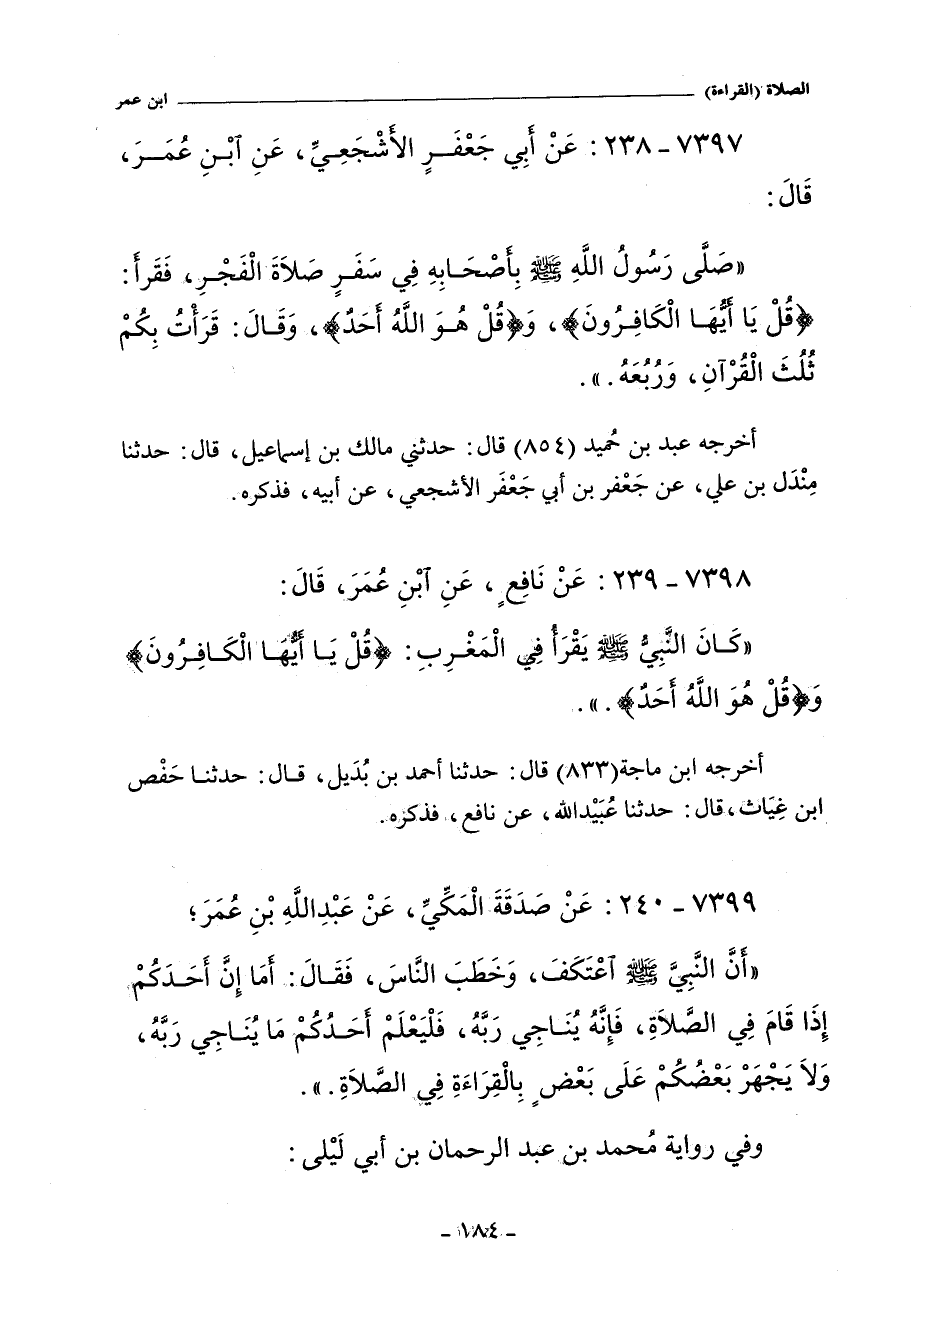 الصلاة (القراءة) ابن عمر
٧٣٩٧ - ٢٣٨ : عَنْ أَبِي جَعْفَرٍ الأَشْجَعِيِّ، عَنِ آبْنِ عُمَرَ،
قَالَ :
«صَلَّى رَسُولُ اللَّهِ ﷺ بِأَصْحَابِهِ فِي سَفَرٍ صَلاَةَ الْفَجْرِ، فَقَرأَ :
﴿قُلْ يَا أَيُّهَا الْكَافِرُونَ﴾، وَ﴿قُلْ هُوَ اللَّهُ أَحَدٌ﴾، وَقَالَ : قَرَأْتُ بِكُمْ
ثُلُثَ الْقُرْآنِ، وَرُبُعَهُ . ».
أخرجه عبد بن حُميد (٨٥٤) قال : حدثني مالك بن إسماعيل، قال : حدثنا
مِنْدَل بن علي، عن جَعْفر بن أبي جَعْفَر الأشجعي، عن أبيه، فذكره.
٧٣٩٨ - ٢٣٩ : عَنْ نَافِعٍ، عَنِ آبْنِ عُمَرَ، قَالَ :
«كَانَ النَّبِيُّ ﷺ يَقْرَأُ فِي الْمَغْرِبِ : ﴿قُلْ يَا أَيُّهَا الْكَافِرُونَ﴾
وَ﴿قُلْ هُوَ اللَّهُ أَحَدٌ﴾ . ».
أخرجه ابن ماجة(٨٣٣) قال : حدثنا أحمد بن بُدَيل، قال : حدثنا حَفْص
ابن غِيَاث، قال : حدثنا عُبَيْدالله، عن نافع، فذكره.
٧٣٩٩ - ٢٤٠ : عَنْ صَدَقَةَ الْمَكِّيِّ، عَنْ عَبْدِاللَّهِ بْنِ عُمَرَ؛
«أَنَّ النَّبِيَّ ﷺ آعْتَكَفَ، وَخَطَبَ النَّاسَ، فَقَالَ : أَمَا إِنَّ أَحَدَكُمْ
إِذَا قَامَ فِي الصَّلاَةِ، فَإِنَّهُ يُنَاجِي رَبَّهُ، فَلْيَعْلَمْ أَحَدُكُمْ مَا يُنَاجِي رَبَّهُ،
وَلاَ يَجْهَرْ بَعْضُكُمْ عَلَى بَعْضٍ بِالْقِرَاءَةِ فِي الصَّلاَةِ . ».
وفي رواية مُحمد بن عبد الرحمان بن أبي لَيْلى :
- ١٨٤ -